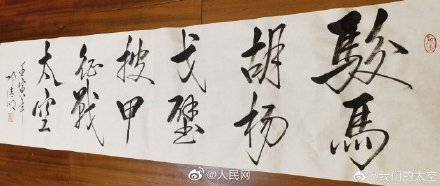 駿馬
胡杨
戈壁
披甲
征戰
太空
壬寅年
@人民网
@我们的太空